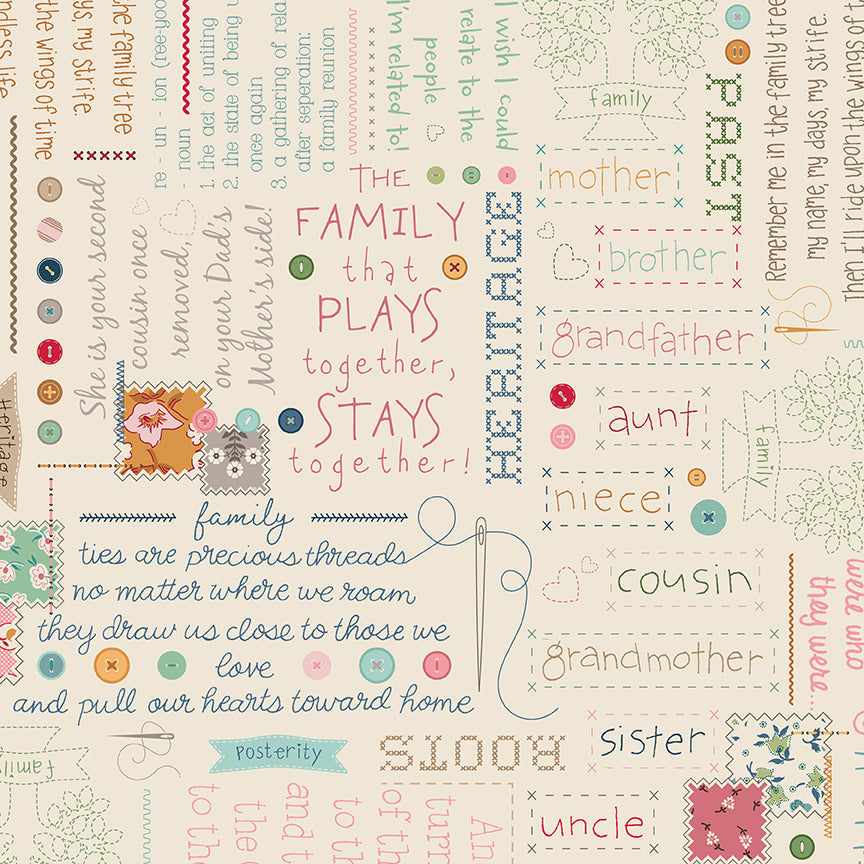 endless life.
the wings of time
ys my strife.
the family tree
re - un - ion (ree-
- noun
1. the act of uniting
2. the state of being u
once again
3. a gathering of rela
after seperation:
a family reunion
I wish I could
relate to the
people
I'm related to!
family
PAST
Remember me in the family tree
my name, my days, my strife.
Then I'll ride upon the wings of
She is your second
cousin once
removed,
on your Dad's
Mother's side!
THE
FAMILY
that
PLAYS
together,
STAYS
together!
HERITAGE
mother
brother
grandfather
aunt
niece
cousin
grandmother
sister
uncle
Heritage
family
family
ties are precious threads
no matter where we roam
they draw us close to those we
love
and pull our hearts toward home
were who
they were...
family
Posterity
ROOTS
An
turn
of th
to th
and t
the
to th